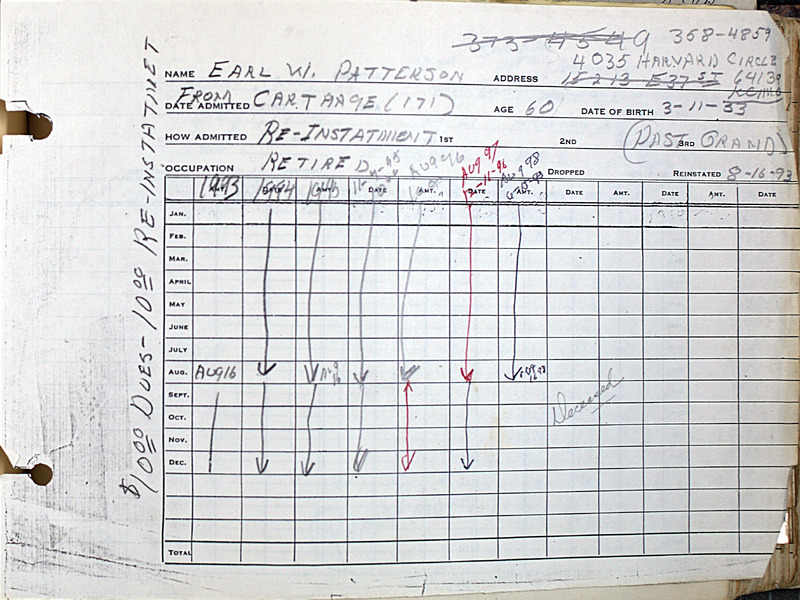 373-4549 358-4859
4035 HARVARD CIRCLE
NAME EARL W. PATTERSON ADDRESS 15213 E 37 ST 64139
KCMO
DATE ADMITTED FROM CARTHAGE (171) AGE 60 DATE OF BIRTH 3-11-33
HOW ADMITTED RE-INSTATMENT 1ST 2ND 3RD (PAST GRAND)
OCCUPATION RETIRED DROPPED REINSTATED 8-16-93
AUG 96 AUG 97 AUG 98
1993 1994 1995
AMT. DATE AMT. DATE AMT. DATE AMT. DATE AMT. DATE AMT. DATE
JAN.
FEB.
MAR.
APRIL
MAY
JUNE
JULY
AUG. AUG16 AUG 16
SEPT.
OCT.
NOV.
DEC.
TOTAL
Deceased
$10.00 DUES-10.00 RE-INSTATMET